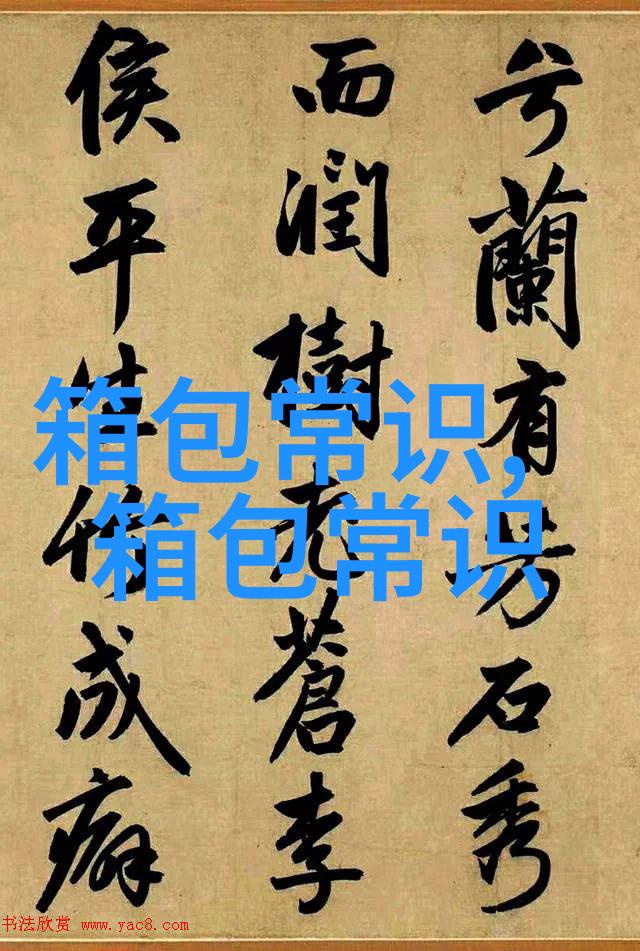 兮蘭有芳石秀
而潤樹老蒼李
侯平生竹成癖
箱包常识,
箱包常识
书法欣赏 www.yac8.com